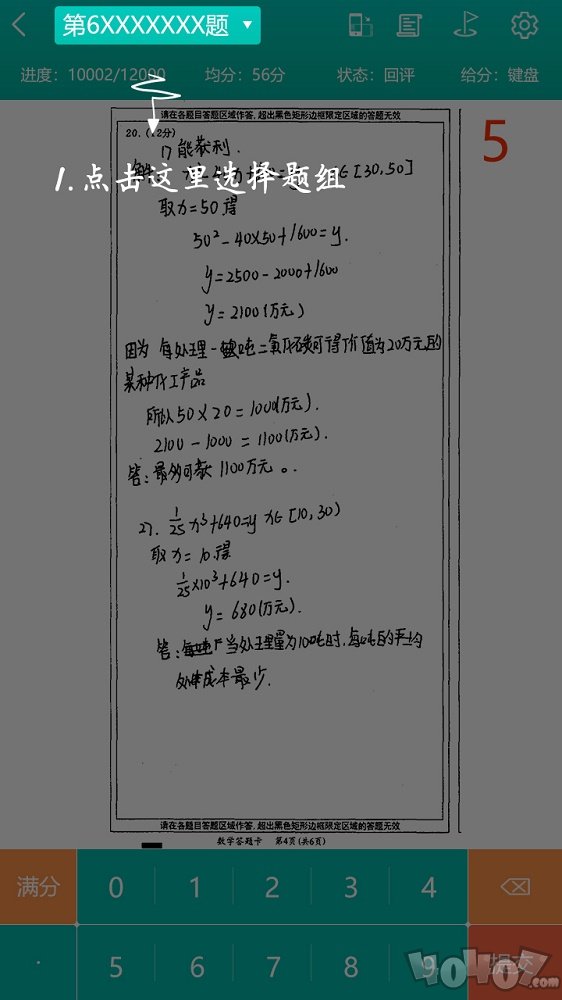 第6XXXXXXX题
进度：10002/12000 均分：56分 状态：回评 给分：键盘
请在各题目答题区域作答，超出黑色矩形边框限定区域的答题无效
5
20.（12分）
1) 能获利.
∈[30,50]
1.点击这里选择题组
取x=50得
50²-40×50+1600=y.
y=2500-2000+1600
y=2100(万元)
因为 每处理一吨二氧化碳可得价值为20万元的
某种化工产品
所以50×20=1000(万元).
2100-1000=1100(万元).
答:最多可获1100万元。
2). 1/25x³+640=y x∈[10,30)
取x=10得
1/25×10³+640=y.
y=680(万元).
答: 当处理量为10吨时,每吨的平均
处理成本最少.
请在各题目答题区域作答，超出黑色矩形边框限定区域的答题无效
数学答题卡 第4页(共6页)
满分 0 1 2 3 4
. 5 6 7 8 9 提交
40407.com